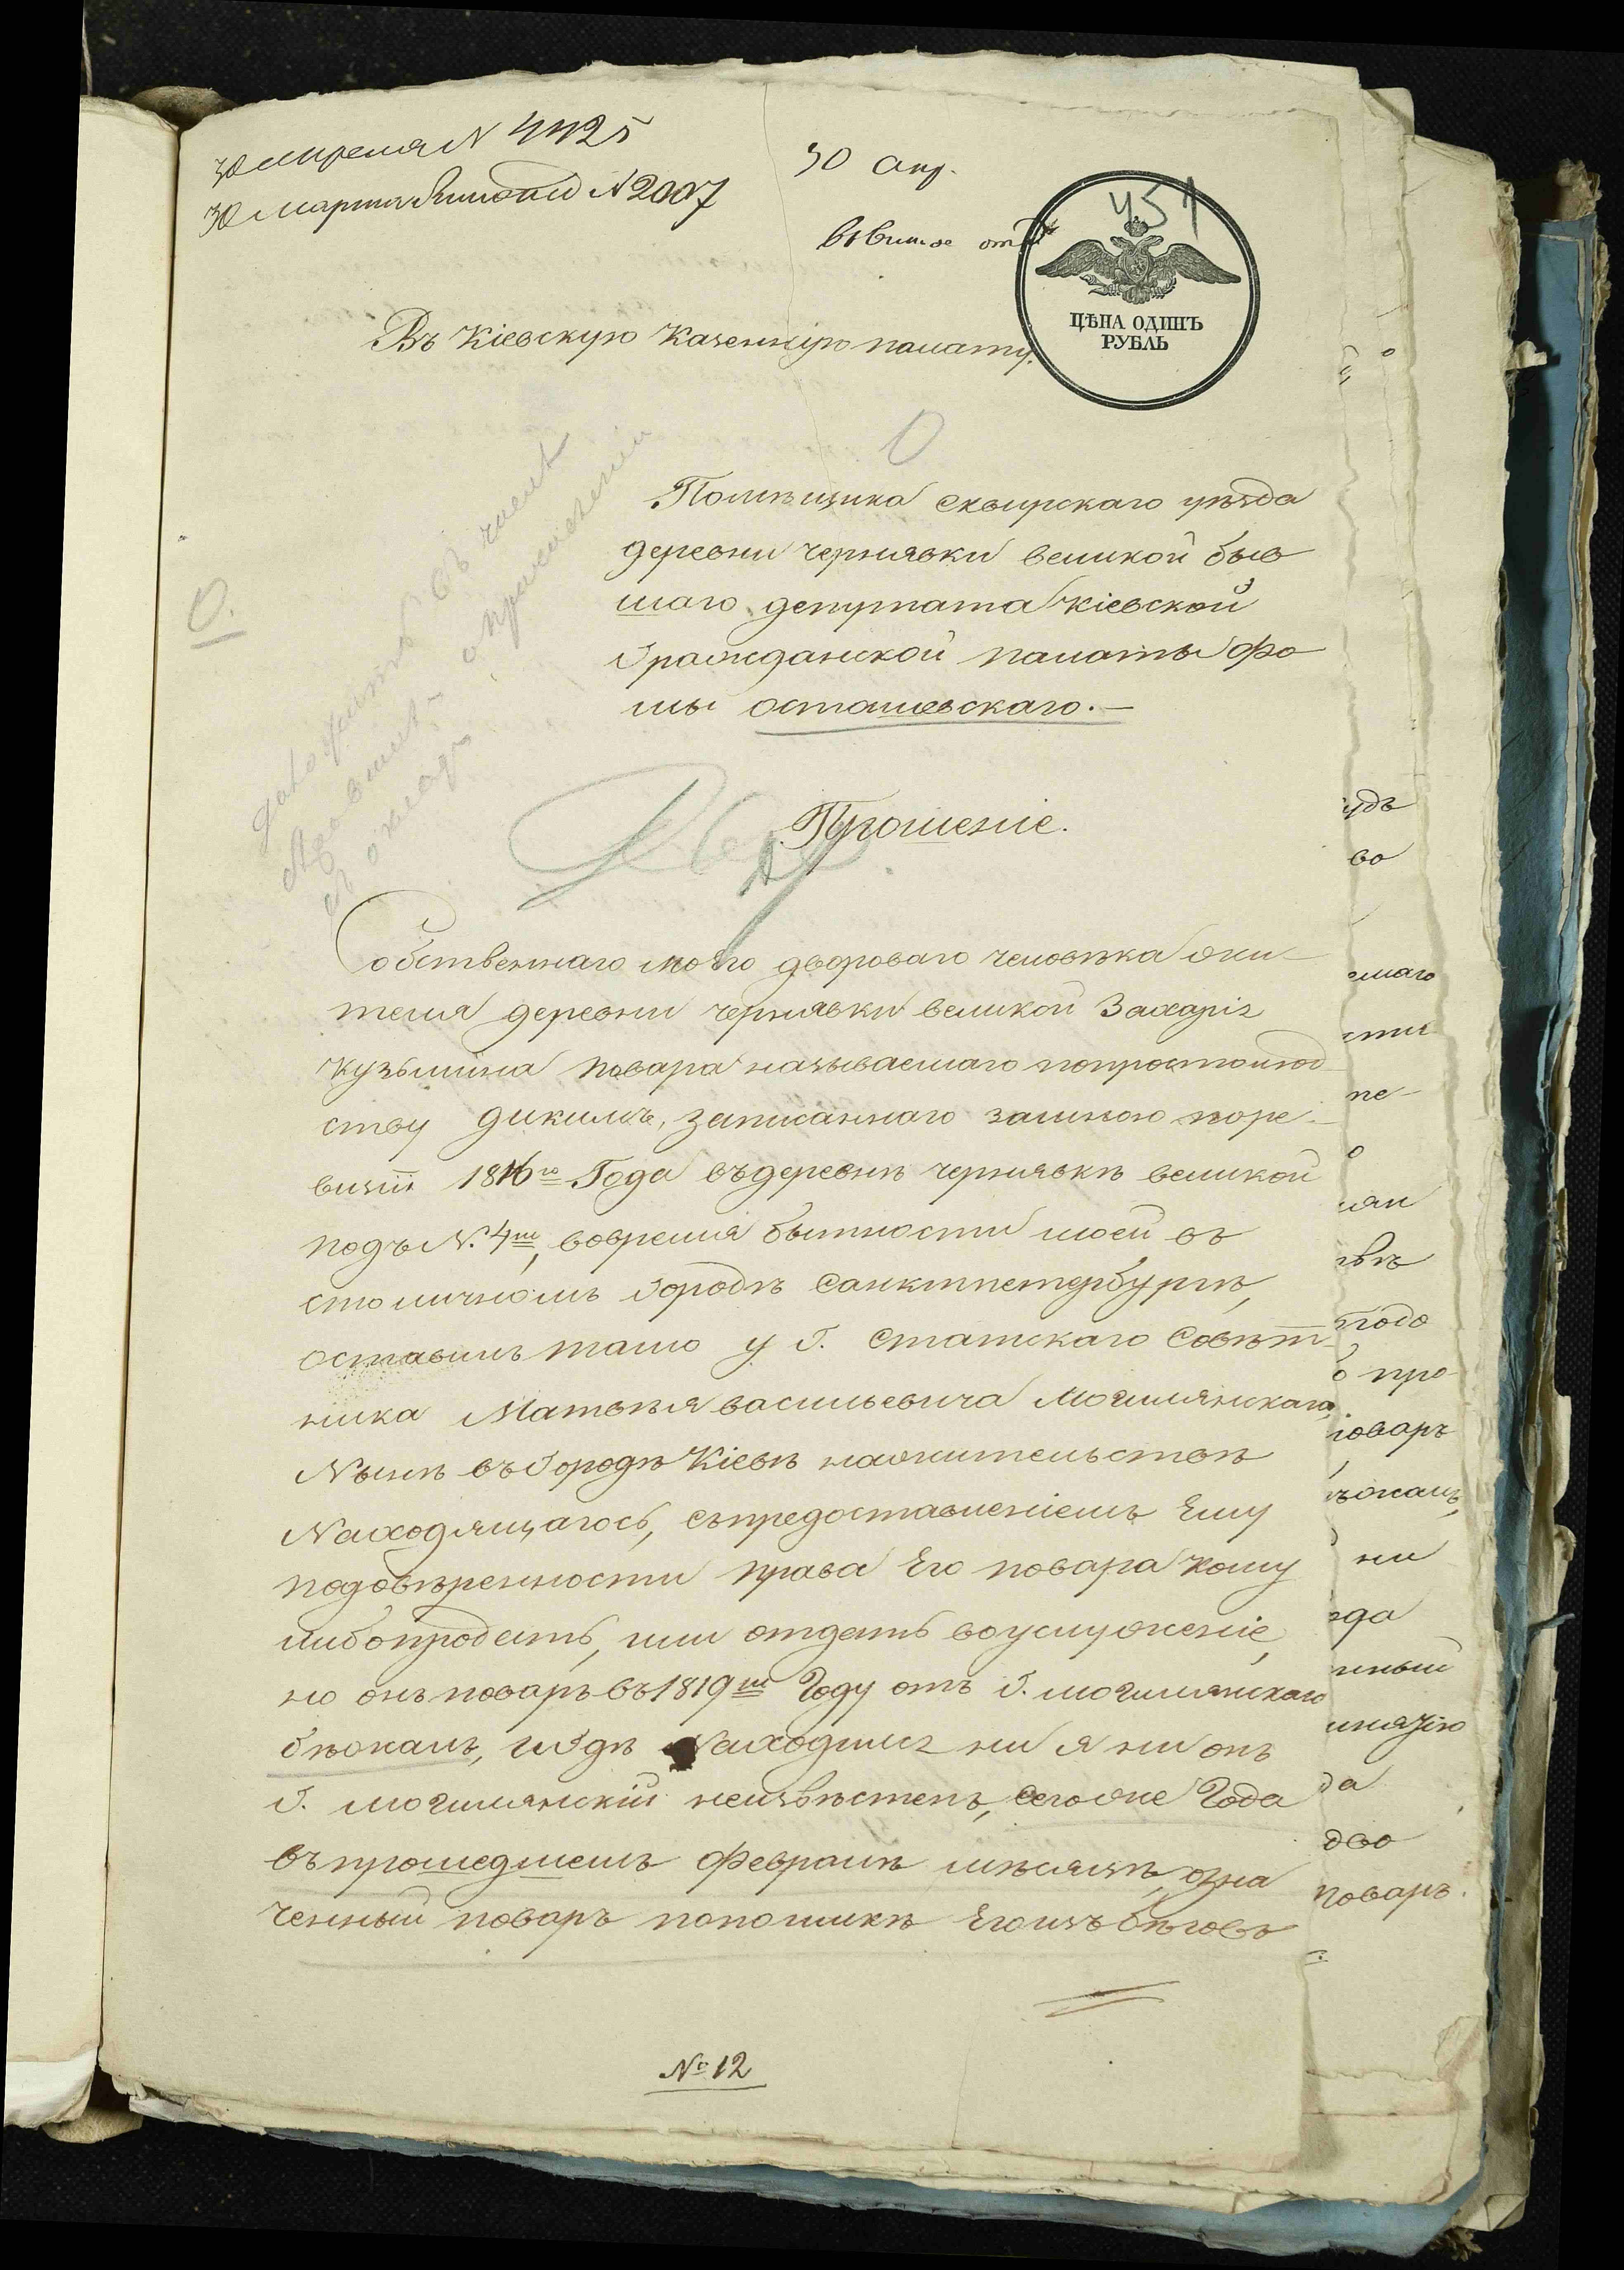 30 апреля N 4425
30 марта N 2007
30 апр.
451
ЦѢНА ОДИНЪ
РУБЛЬ
Въ Кіевскую Казенную палату.
Помѣщика сквирскаго уѣзда
деревни чернявки великой быв
шаго депутата Кіевской
Гражданской палаты Фо
мы осташевскаго.—
Прошеніе.
Собственнаго моего двороваго человѣка жи-
теля деревни чернявки великой Захаріѧ
Кузьмина повара называемаго попростолюд
ству дикимъ, записаннаго замною поре-
визіи 1816го Года въдеревнѣ чернявкѣ великой
подъ N. 4м, вовремя бытности моей въ
столичномъ Городѣ Санктпетербургѣ,
оставилъ тамо у Г. Статскаго Совѣт-
ника Матвѣя васильевича Могилянскаго,
Нынѣ въГородѣ Кіевѣ нажительствѣ
Находящагось, съпредоставленіемъ Ему
подовѣренности права Его повара кому
либопродать, или отдать воуслуженіе,
но онъ поваръ въ1819м Году отъ Г. могилянскаго
бѣжалъ, игдѣ Находилсѧ ни я ни онъ
Г. могилянскій неизвѣстенъ, сегоже Года
въпрошедшемъ февралѣ мѣсяцѣ, озна
ченный поваръ попоимкѣ Егоизъ бѣговъ
N° 12
во
емаго
пе-
о
о про-
поваръ
ни
да
дво
поваръ.